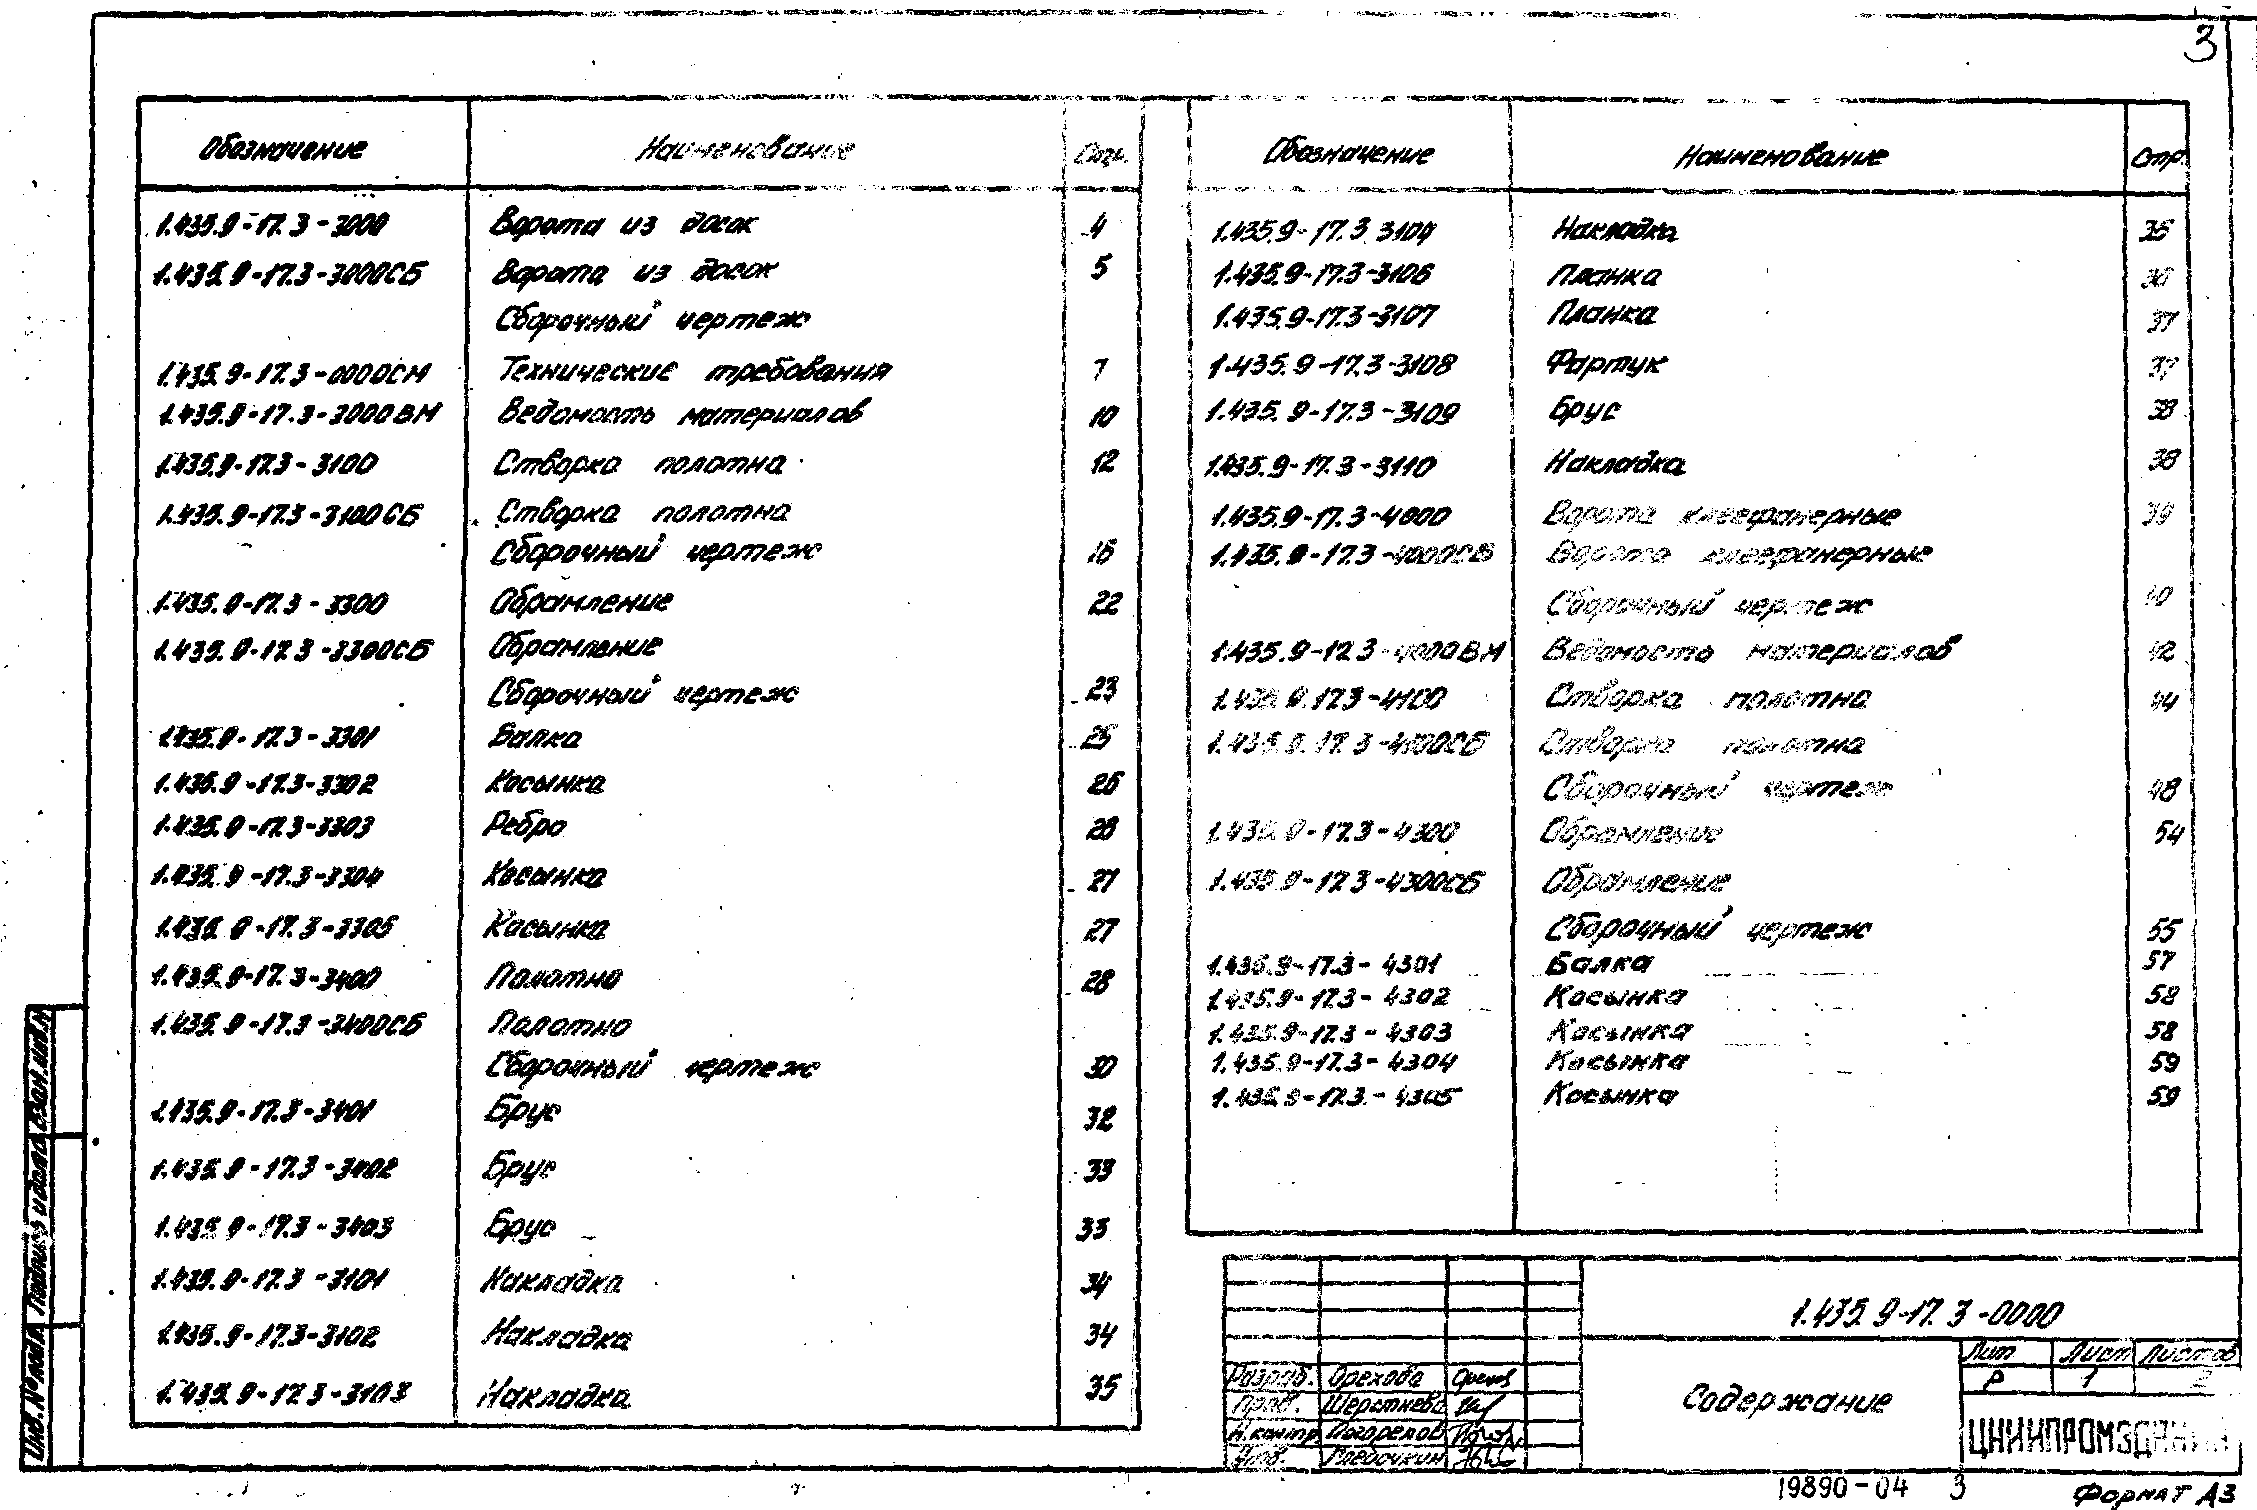 3
Обозначение Наименование Стр.
1.435.9-17.3-3000 Ворота из досок 4
1.435.9-17.3-3000СБ Ворота из досок 5
Сборочный чертеж
1.435.9-17.3-0000СМ Технические требования 7
1.435.9-17.3-3000ВМ Ведомость материалов 10
1.435.9-17.3-3100 Створка полотна 12
1.435.9-17.3-3100СБ Створка полотна
Сборочный чертеж 16
1.435.9-17.3-3300 Обрамление 22
1.435.9-17.3-3300СБ Обрамление
Сборочный чертеж 23
1.435.9-17.3-3301 Балка 25
1.435.9-17.3-3302 Косынка 26
1.435.9-17.3-3303 Ребро 26
1.435.9-17.3-3304 Косынка 27
1.435.9-17.3-3305 Косынка 27
1.435.9-17.3-3400 Полотно 28
1.435.9-17.3-3400СБ Полотно
Сборочный чертеж 30
1.435.9-17.3-3401 Брус 32
1.435.9-17.3-3402 Брус 33
1.435.9-17.3-3403 Брус 33
1.435.9-17.3-3101 Накладка 34
1.435.9-17.3-3102 Накладка 34
1.435.9-17.3-3103 Накладка 35
Обозначение Наименование Стр.
1.435.9-17.3 3104 Накладка 35
1.435.9-17.3-3106 Планка 36
1.435.9-17.3-3107 Планка 37
1.435.9-17.3-3108 Фартук 37
1.435.9-17.3-3109 Брус 38
1.435.9-17.3-3110 Накладка 38
1.435.9-17.3-4000 Ворота клеефанерные 39
1.435.9-17.3-4000СБ Ворота клеефанерные
Сборочный чертеж 40
1.435.9-17.3-4000ВМ Ведомость материалов 42
1.435.9.17.3-4100 Створка полотна 44
1.435.9.17.3-4100СБ Створка полотна
Сборочный чертеж 48
1.435.9-17.3-4300 Обрамление 54
1.435.9-17.3-4300СБ Обрамление
Сборочный чертеж 55
1.435.9-17.3-4301 Балка 57
1.435.9-17.3-4302 Косынка 58
1.435.9-17.3-4303 Косынка 58
1.435.9-17.3-4304 Косынка 59
1.435.9-17.3-4305 Косынка 59
1.435.9-17.3-0000
Разраб. Орехова
Пров. Шерстнева
Н.контр. Погорелов
Утв.
Содержание
Лит Лист Листов
Р 1 2
ЦНИИПРОМЗДАНИЙ
Инв.№подл. Подпись и дата Взам.инв.№
19890-04 3
Формат А3